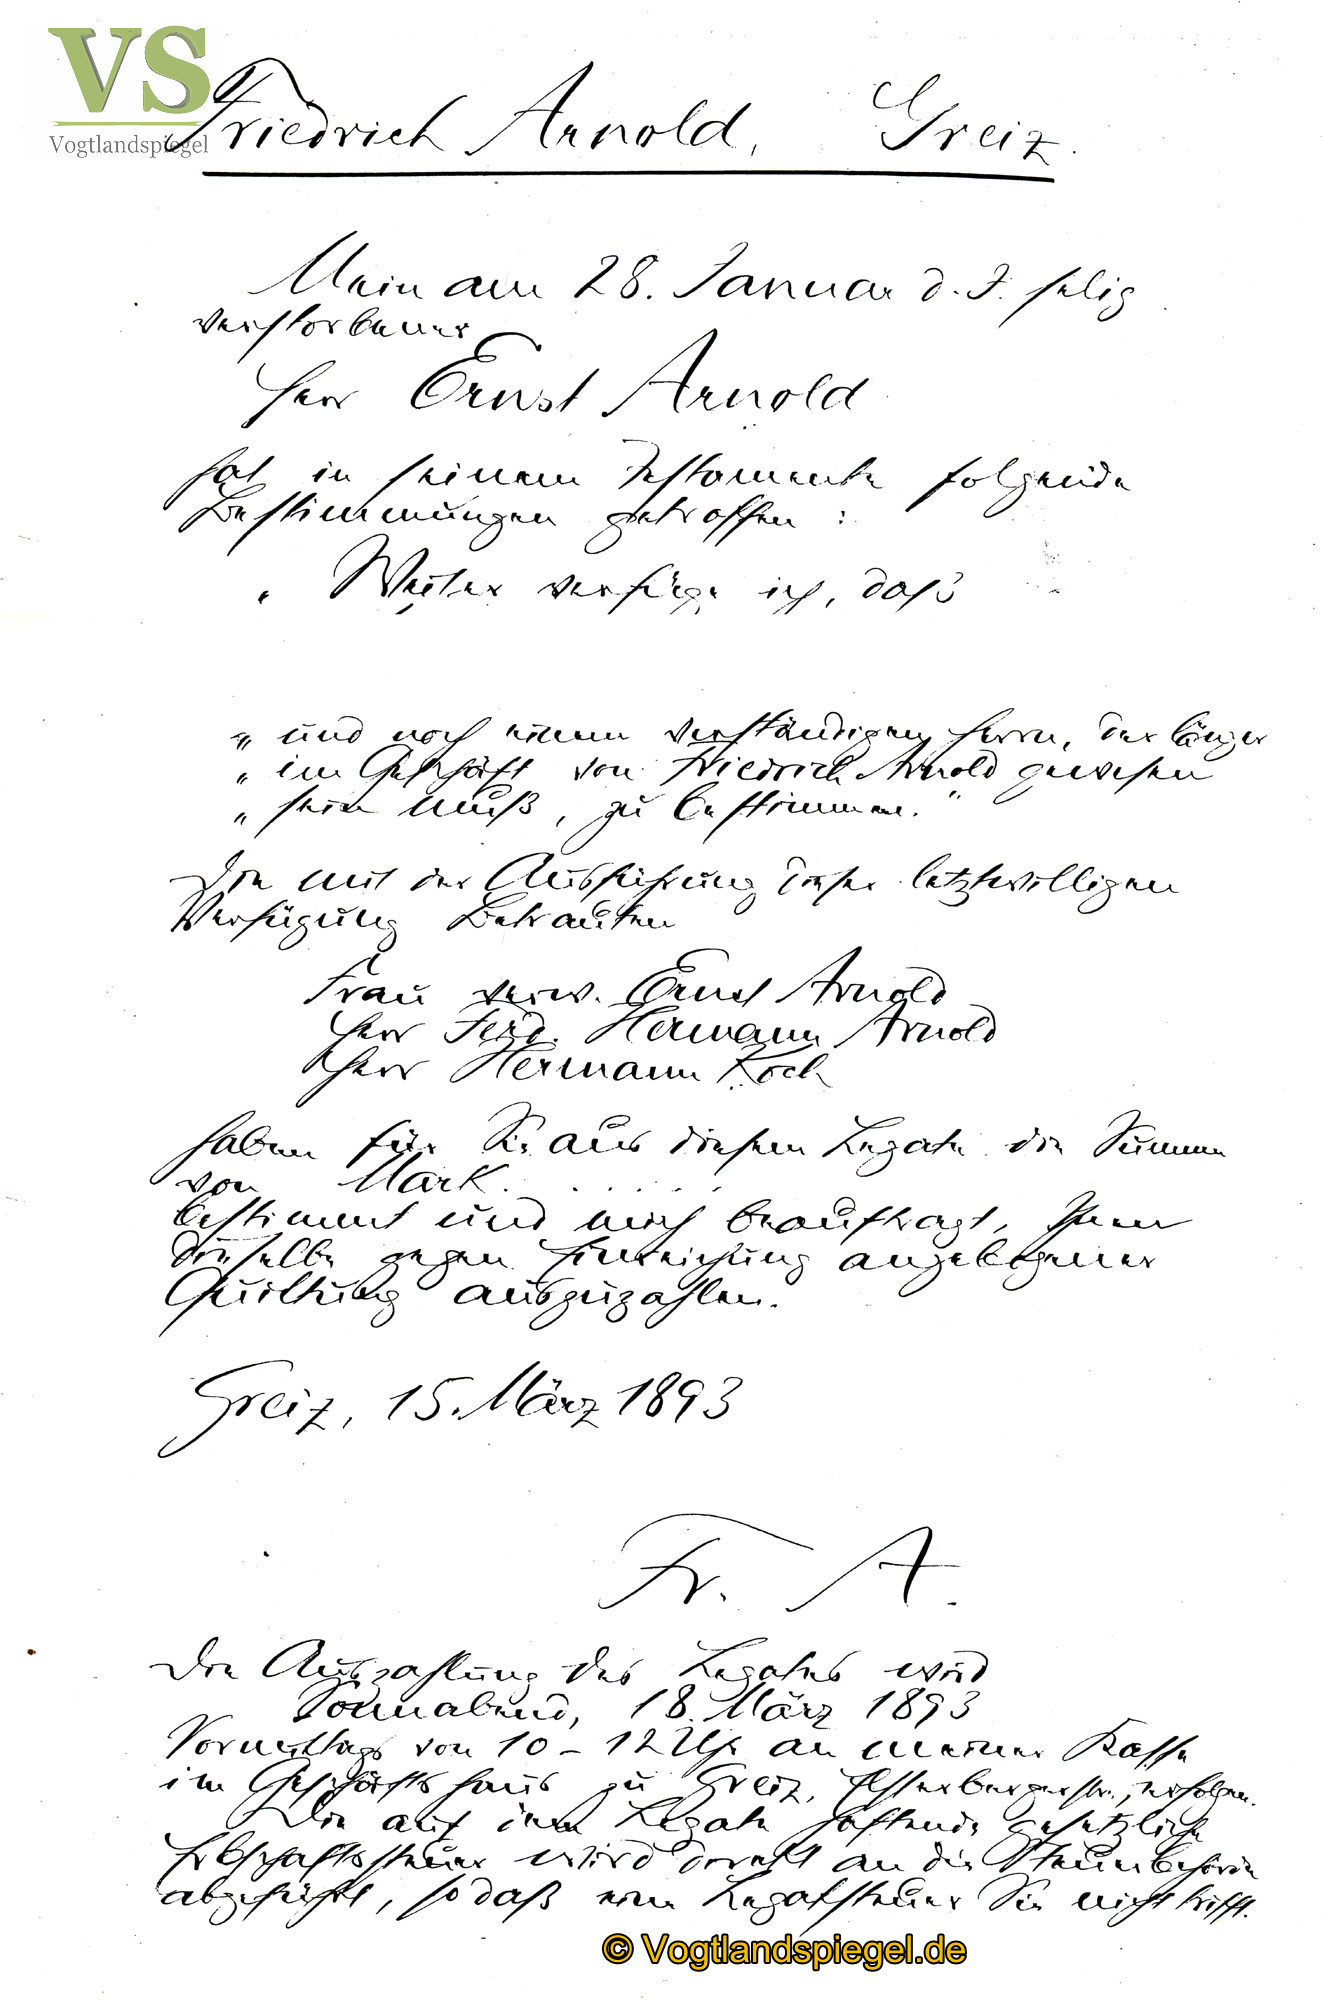 VS
Vogtlandspiegel
Friedrich Arnold, Greiz.
Mein am 28. Januar d. J. selig
verstorbener
Herr Ernst Arnold
hat in seinem Testamente folgende
Bestimmungen getroffen:
„ Weiter verfüge ich, daß
„ und noch einem verständigen Herrn, der länger
„ im Geschäft von Friedrich Arnold gewesen
„ sein muß, zu bestimmen.“
Die mit der Ausführung dieser letztwilligen
Verfügung Betrauten
Frau verw. Ernst Arnold
Herr Ferd. Hermann Arnold
Herr Hermann Koch
haben für Sie aus diesem Legate die Summe
von Mark . . . . . .
bestimmt und mich beauftragt, Ihnen
dieselbe gegen Einreichung angebogener
Quittung auszuzahlen.
Greiz, 15. März 1893
Fr. A.
Die Auszahlung des Legates wird
Sonnabend, 18. März 1893
Vormittags von 10 – 12 Uhr an meiner Kasse
im Geschäftshaus zu Greiz, Elsterbergerstr., erfolgen.
Die auf dem Legate haftende gesetzliche
Erbschaftssteuer wird direkt an die Steuerbehörde
abgeführt, so daß eine Legatsteuer Sie nicht trifft.
© Vogtlandspiegel.de